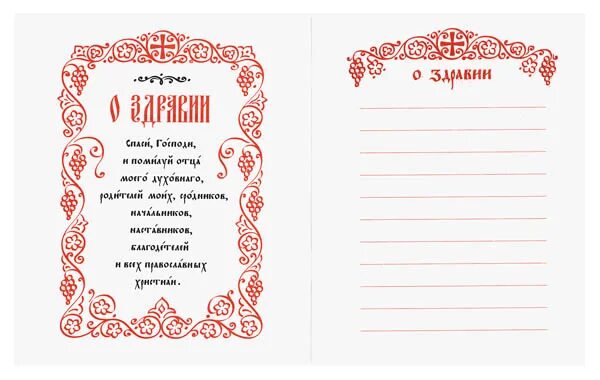 О ЗДРАВИИ
Спаси́, Го́споди,
и поми́луй отца́
моего́ духо́внаго,
роди́телей мои́х, сро́дников,
нача́льников,
наста́вников,
благоде́телей
и всех правосла́вных
христиа́н.
О ЗДРАВИИ